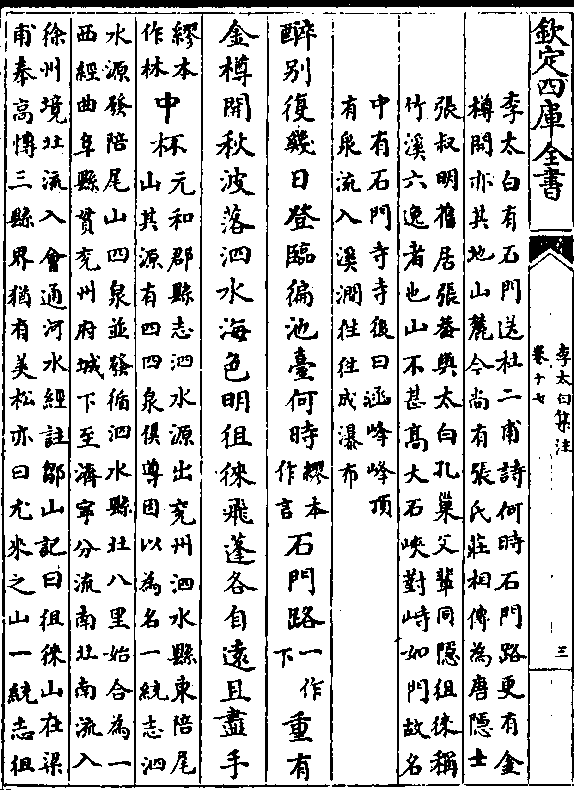 欽定四庫全書
李太白集注
卷十七
三
李太白有石門送杜二甫詩何時石門路更有金
樽開亦其地山麓今尚有張氏莊相傳為唐隱士
張叔明舊居張蓋與太白孔巢父輩同隱徂徠稱
竹溪六逸者也山不甚髙大石峽對峙如門故名
中有石門寺寺後曰涵峰峰頂
有泉流入溪澗往往成瀑布
醉别復幾日登臨徧池臺何時
繆本
作言
石門路
一作
下
重有
金樽開秋波落泗水海色明徂徠飛蓬各自逺且盡手
繆本
作林
中杯
元和郡縣志泗水源出兖州泗水縣東陪尾
山其源有四四泉俱導因以為名一統志泗
水源發陪尾山四泉並發循泗水縣北八里始合為一
西經曲阜縣貫兖州府城下至濟寧分流南北南流入
徐州境北流入會通河水經註鄒山記曰徂徠山在梁
甫奉髙博三縣界猶有美松亦曰尤來之山一統志徂